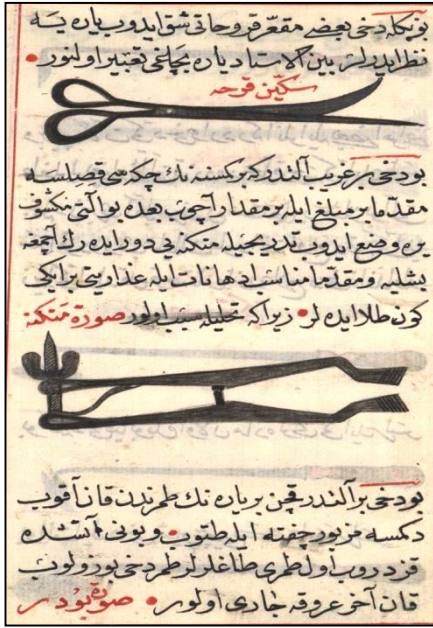 بونكله دخی بعضه مقعّر قروحاتی شق ایدوب یاره یه
نظر ایدرلر بین الاستاد یاره بچاغی تعبیر اولنور
سكّین قرحه
بو دخی بر غریب آلتدر كه بر كمسنه نك چكه سی
مقدّما بر مبلغ ایله بر مقدار آچوب بعده بو آلتی مكشوف
یره وضع ایدوب تدریجیله متكنه یی دور ایده رك آچمغه
بشلیه و مقدّما مناسب ادهانات ایله عذارینی بر ایكی
كون طلا ایده لر زیرا كه تحلیله سبب اولور صورة متكنه
بو دخی بر آلتدر قچن بر یاره نك طمرندن قان آقوب
دكمسه مزبور چفته ایله طتوب و بونی آتشده
قزدروب اول طمری طاغلرلر طمر دخی بوزولوب
قان آخر عروقه جاری اولور صورة بودر